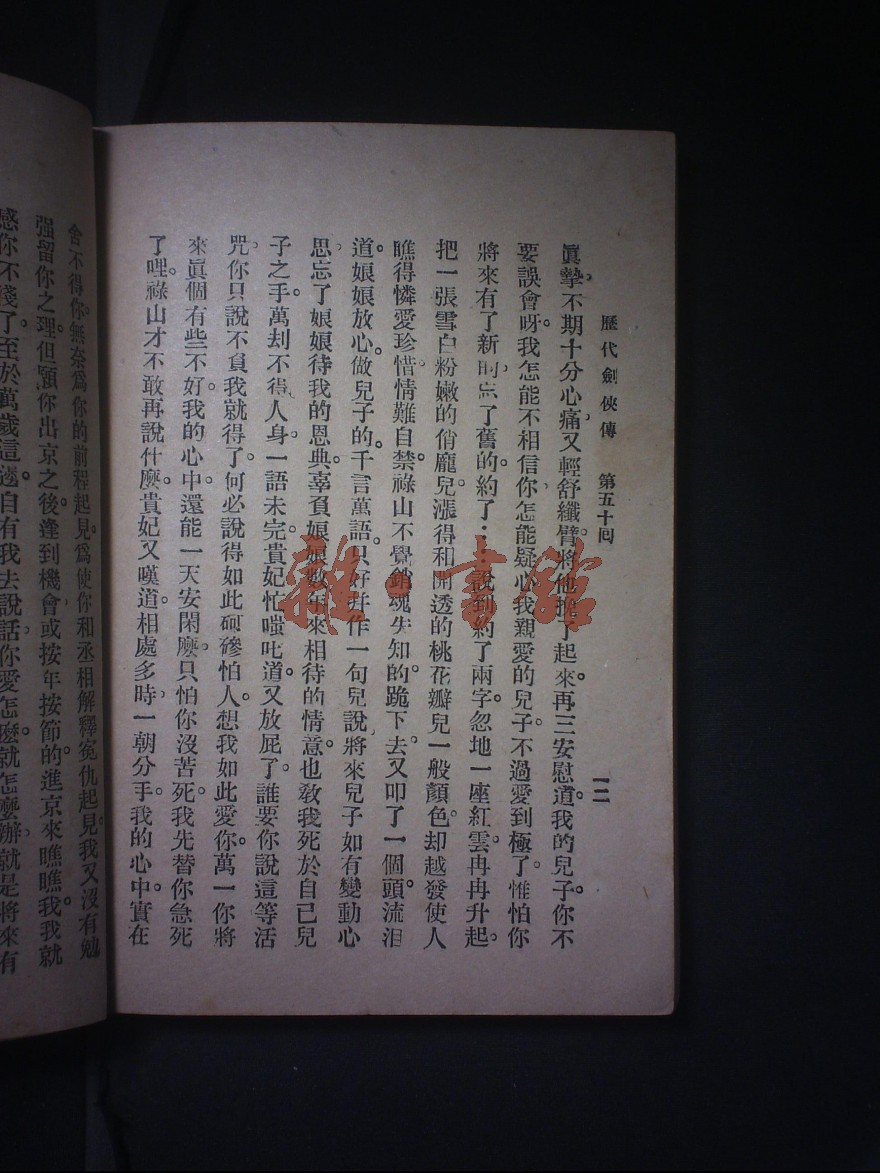 歷代劍俠傳　第五十回
一二
眞摯不期十分心痛又輕舒纖臂將他摻了起來。再三安慰道。我的兒子。你不
要誤會呀。我怎能不相信你怎能疑心我親愛的兒子。不過愛到極了。惟怕你
將來有了新的忘了舊的約了……說到約了兩字。忽地一座紅雲冉冉升起。
把一張雪白粉嫩的俏龐兒漲得和開透的桃花瓣兒一般顏色。却越發使人
瞧得憐愛珍惜情難自禁。祿山不覺銷魂失知的跪下去。又叩了一個頭。流泪
道。娘娘放心。做兒子的。千言萬語。只好幷作一句兒說。將來兒子如有變動心
思。忘了娘娘待我的恩典。辜負娘娘數年來相待的情意。也敎我死於自己兒
子之手。萬刦不得人身。一語未完。貴妃忙嗤叱道。又放屁了。誰要你說這等活
咒。你只說不負我就得了。何必說得如此砢磣怕人。想我如此愛你。萬一你將
來眞個有些不好。我的心中。還能一天安閑麼。只怕你沒苦死。我先替你急死
了哩。祿山才不敢再說什麼。貴妃又嘆道。相處多時。一朝分手。我的心中。實在
舍不得你。無奈爲你的前程起見。爲使你和丞相解釋冤仇起見。我又沒有勉
强留你之理。但願你出京之後。逢到機會。或按年按節的進京來瞧瞧我。我就
感你不淺了。至於萬歲這邊。自有我去說話。你愛怎麼。就怎麼辦。就是將來有